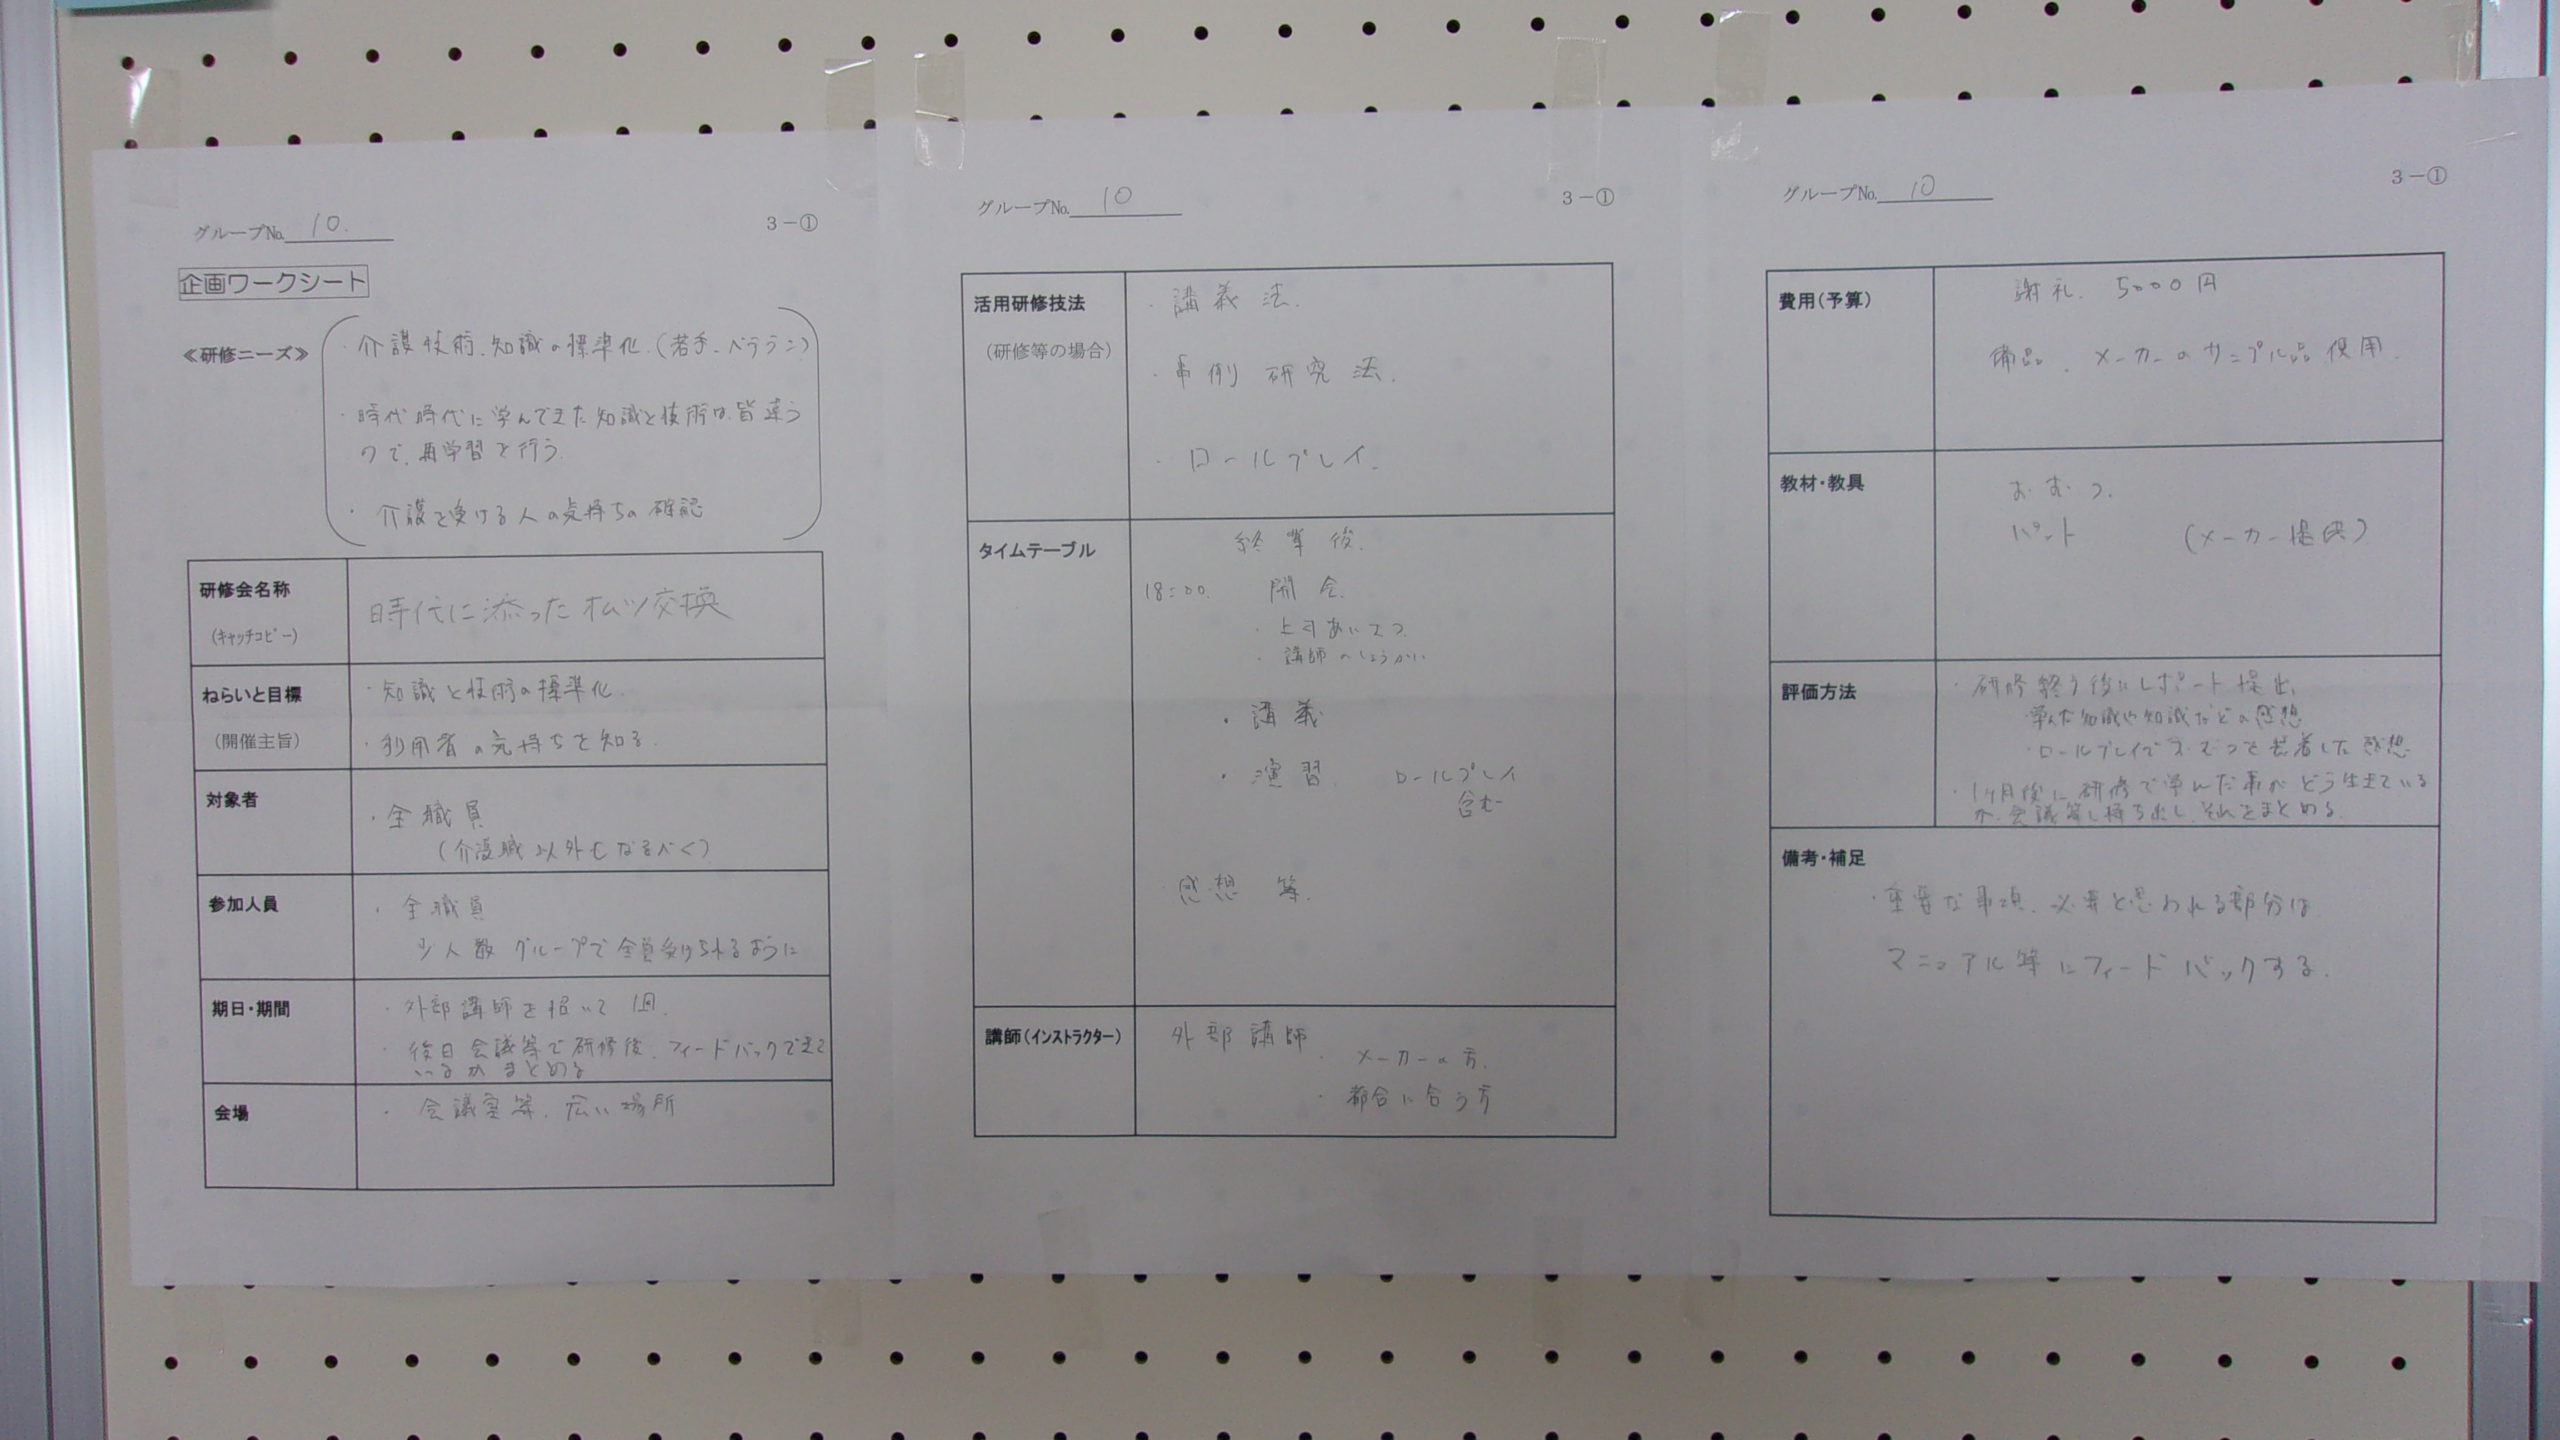 グループNo. 10.
3-①
企画ワークシート
≪研修ニーズ≫
・介護技術、知識の標準化、(若手、ベテラン)
・時代時代に学んできた知識と技術は、皆違う
ので、再学習を行う。
・介護を受ける人の気持ちの確認
研修会名称
(キャッチコピー)
時代に添ったオムツ交換
ねらいと目標
(開催主旨)
・知識と技術の標準化
・利用者の気持ちを知る。
対象者
・全職員
(介護職以外もなるべく)
参加人員
・全職員
少人数グループで全員受けられるように
期日・期間
・外部講師を招いて 1回。
・後日会議等で研修後、フィードバックできて
いるかまとめる
会場
・会議室等、広い場所
グループNo. 10
3-①
活用研修技法
(研修等の場合)
・講義法.
・事例研究法.
・ロールプレイ.
タイムテーブル
終業後.
18:00. 開会.
・上司あいさつ
・講師のしょうかい
・講義
・演習. ロールプレイ
含む
感想 等.
講師(インストラクター)
外部講師
・メーカーの方.
・都合に合う方
グループNo. 10
3-①
費用(予算)
謝礼. 5000円
備品. メーカーのサンプル品使用.
教材・教具
おむつ.
パット (メーカー提供)
評価方法
・研修終う後にレポート提出.
・学んだ知識や知識などの感想
・ロールプレイでおむつを装着した感想
・1ヶ月後に研修で学んだ事がどう生きている
か、会議等に持ち出し、それをまとめる.
備考・補足
・重要な事項、必要と思われる部分は
マニュアル等にフィードバックする.